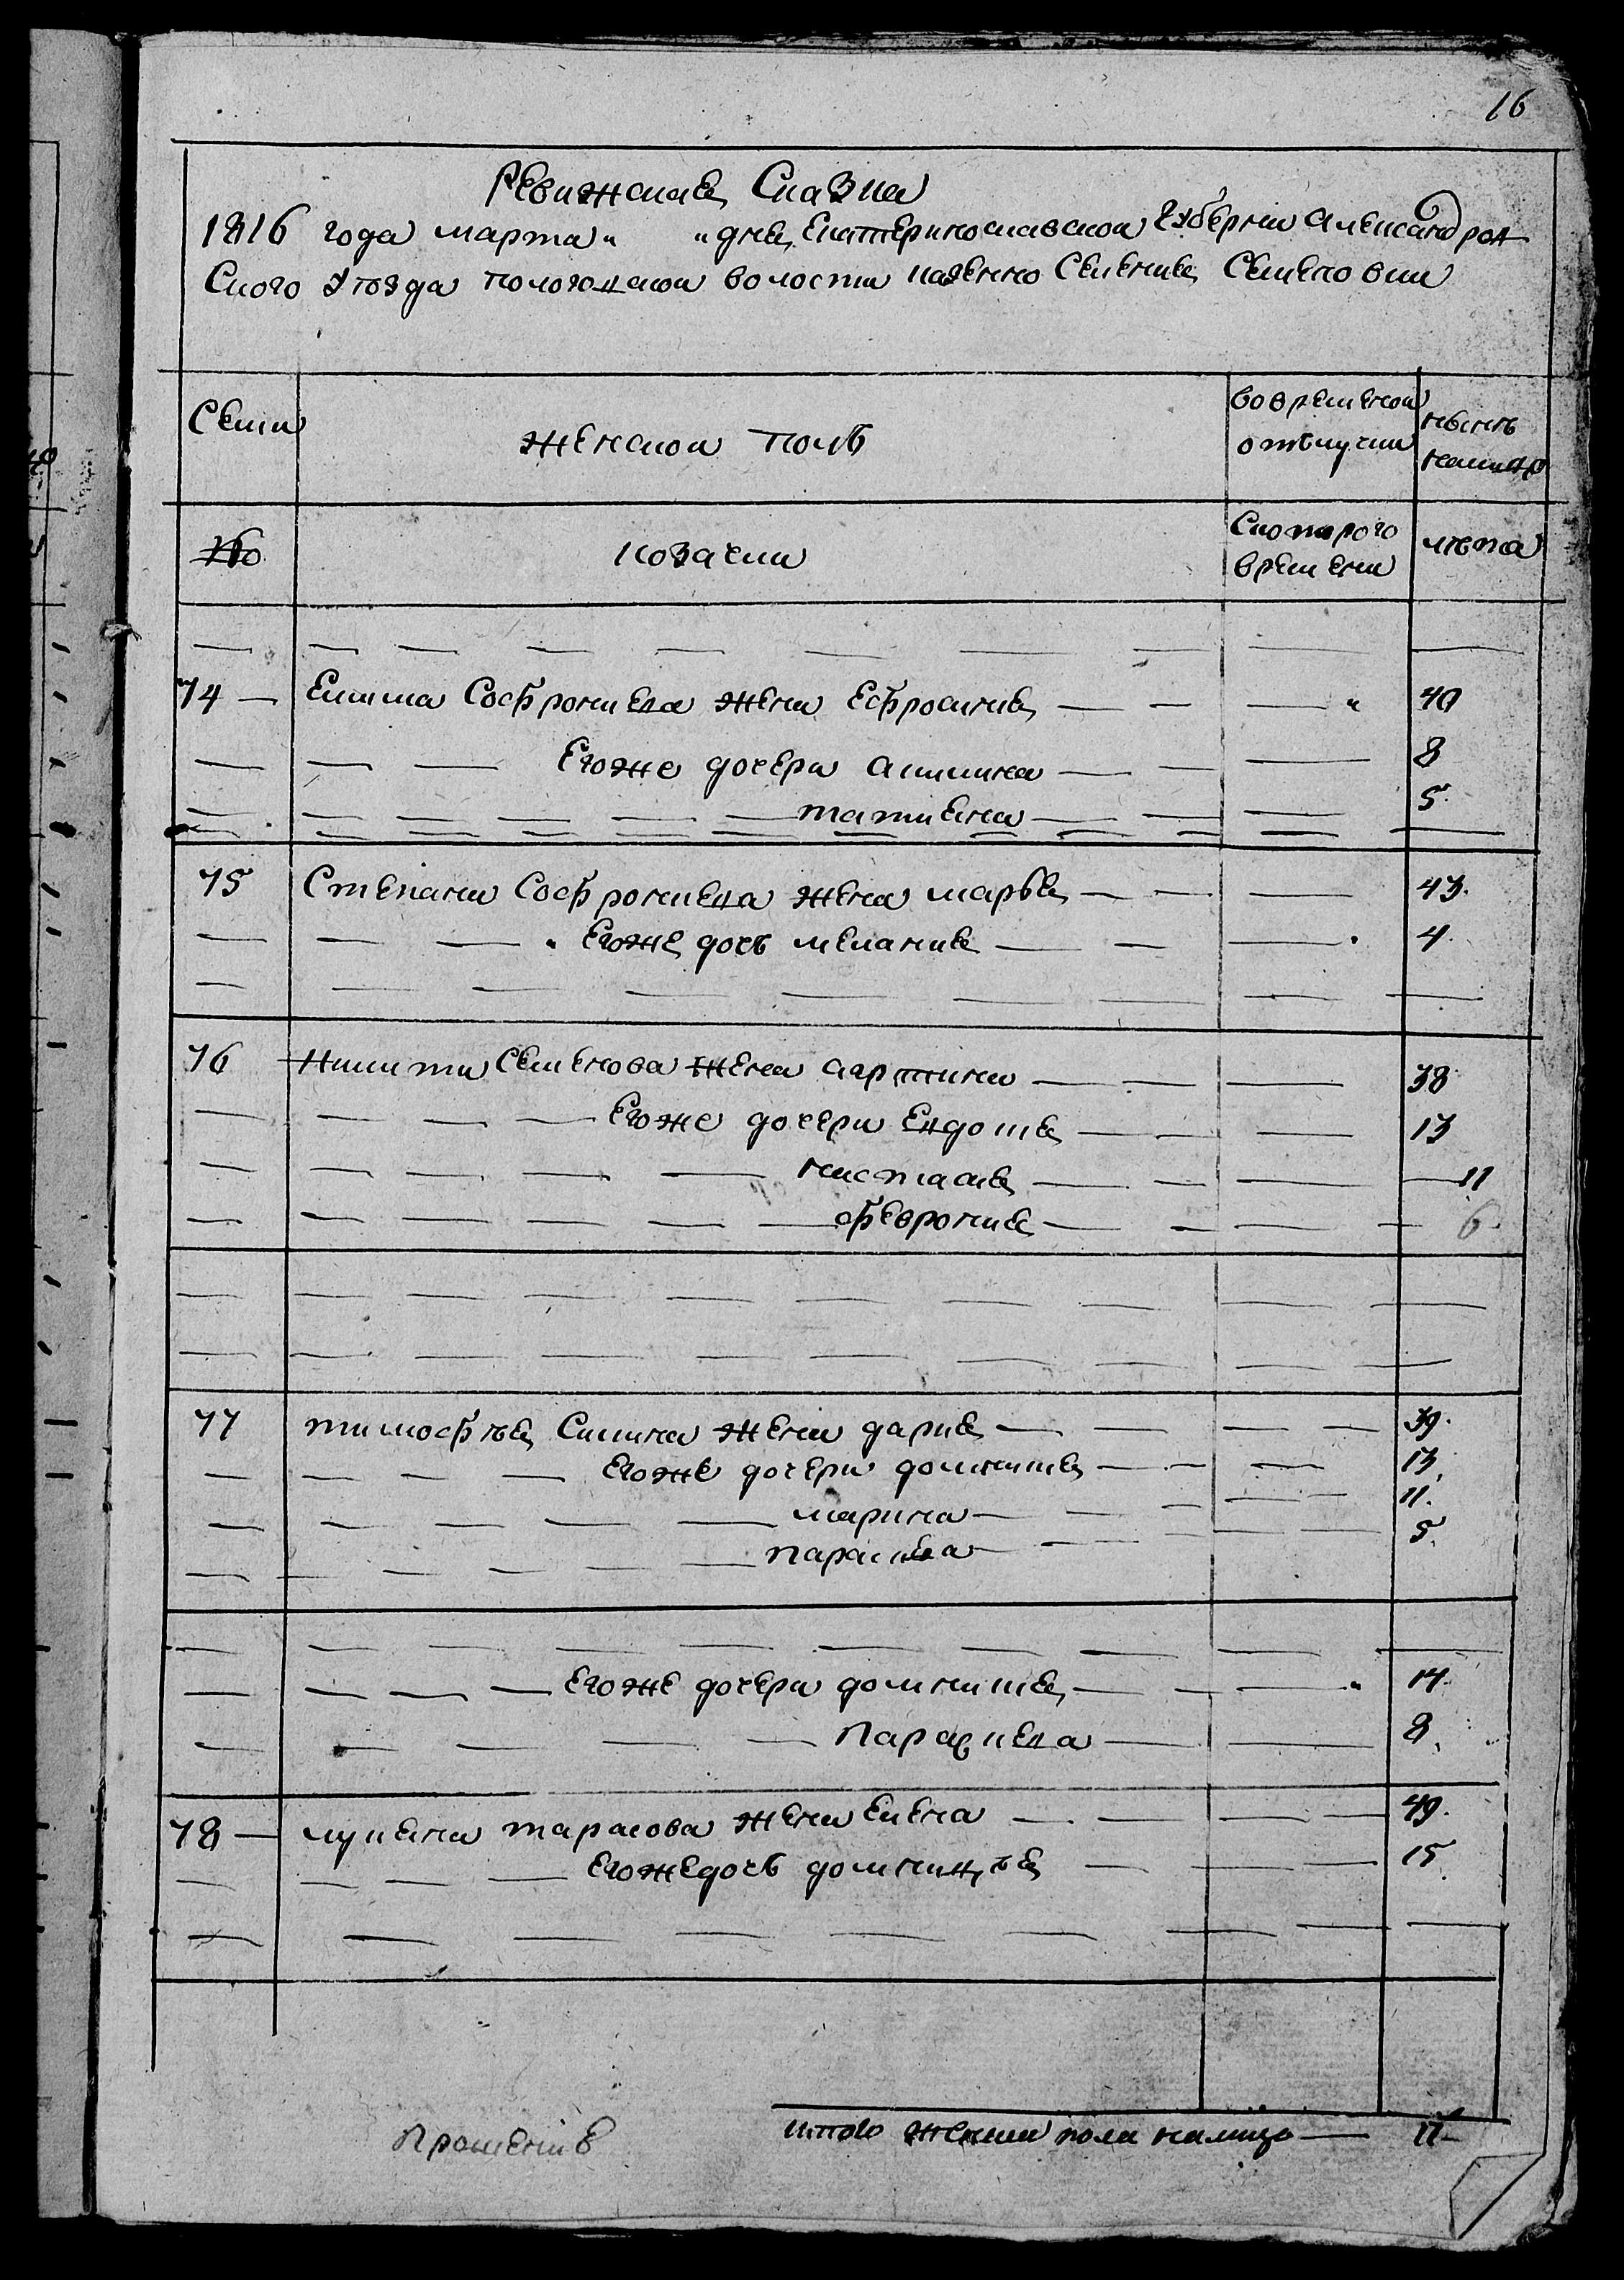 16
Ревижская Сказка
1816 года марта " " дня Екатеринославской Губернии Александров
Ского уѣзда пологовской волости казенно Селения Семеновки
Семи
женской полъ
вовременой отлучки
нынѣ налицо
№
козачки
Скоторого времени
лѣта
74 Екима Софрониева жена Ефросиния " 40
Егоже дочери акилина 8
татиена 5
75 Степана Софрониева жена марья 43
Егоже дочь мелания 4
76 Никиты Семенова жена 38
Егоже дочери Евдокия 13
настасия 11
феврония 6
77 тимофѣя Силина жена дария 39
Егоже дочери домникия 13
марина 11
параскева 5
Егоже дочери домникия " 14
параскева 8
78 лукяна тарасова жена Елена 49
Егоже дочь 15
итого женска пола налицо 17
Прошение